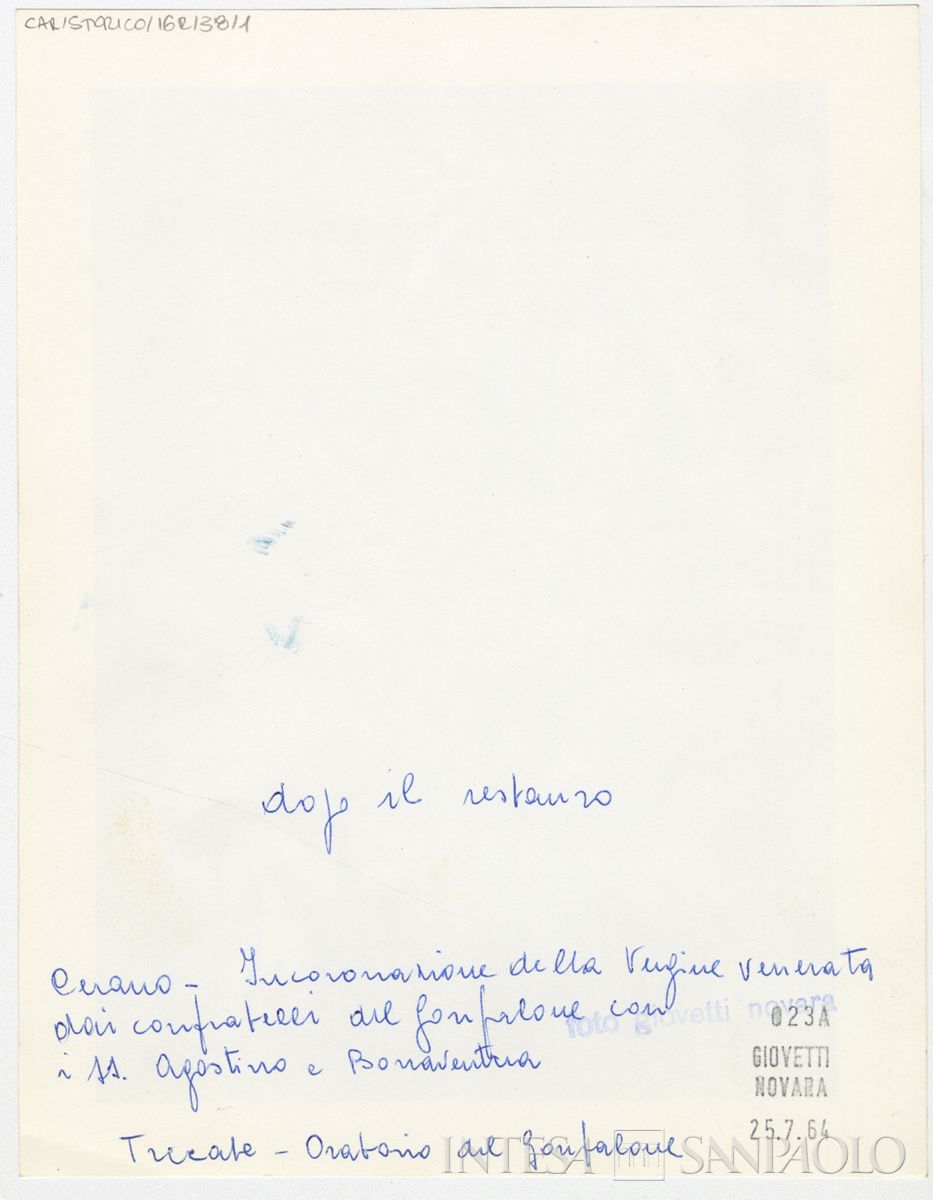 CARISTORICO/16R/38/1
dopo il restauro
Cerano - Incoronazione della Vergine venerata
dai confratelli del Gonfalone con
i SS. Agostino e Bonaventura
foto giovetti novara
023A
GIOVETTI
NOVARA
25.7.64
Trecate - Oratorio del Gonfalone
INTESA SANPAOLO